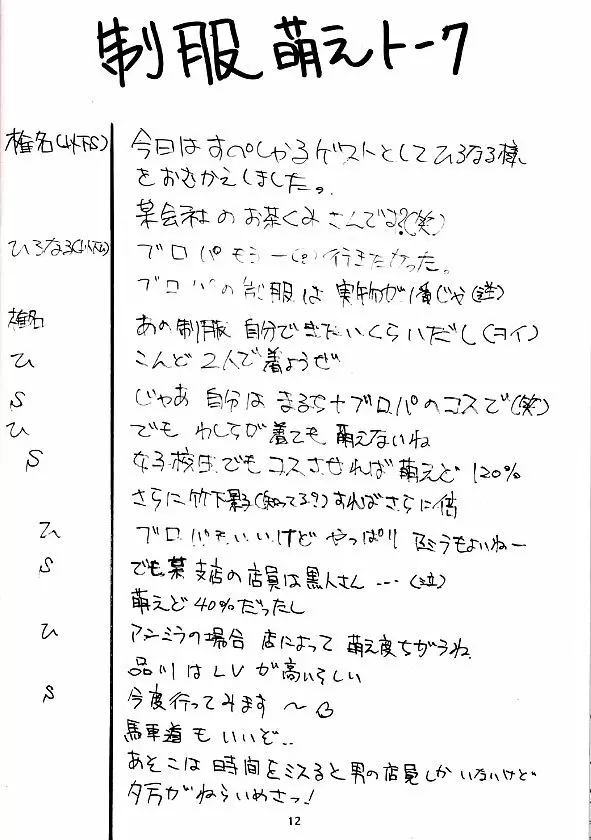 制服 萌えトーク
椎名(以下S) 今日は すぺしゃるゲストとして ひろなる様
をおむかえしました。
某会社の お茶くみ さんでは?(笑)
ひろなる(以下ひ) ブロパ もう一(?)行きたかった。
ブロパの 制服は 実物が1番じゃ
椎名 あの制服 自分できたいくらいだし(ヨイ)
ひ こんど 2人で着ようぜ
S じゃあ 自分は まるち+ブロパのコスで(笑)
ひ でも わしらが着ても 萌えないね
S 女子校生でもコスさせれば萌えど 120%
さらに竹下 (知ってる?)すればさらに倍
ひ ブロパもいいけど やっぱり もよいねー
S でも、某支店の店員は黒人さん…(泣)
萌えど 40%だったし
ひ アンミラの場合 店によって 萌え度ちがうね
品川はLVが高いらしい
S 今度行ってみます〜
馬車道もいいぞ..
あそこは 時間をミスると男の店員しかいないけど
夕方がねらいめさっ!
12